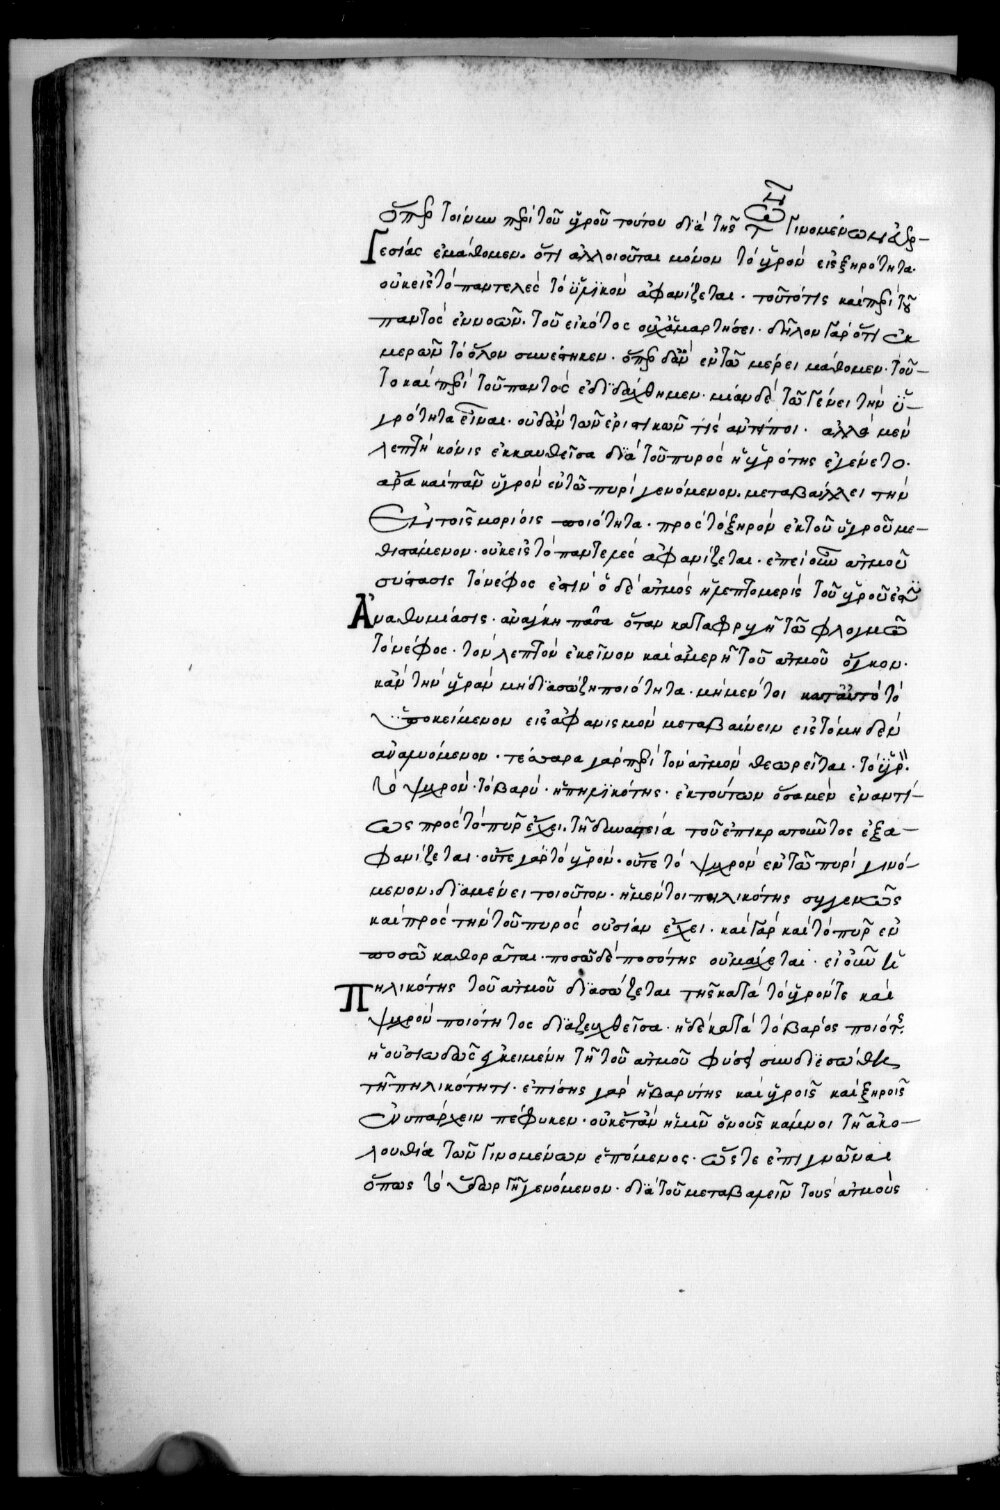 ὅπερ τοίνυν περὶ τοῦ ὑγροῦ τούτου διὰ τῆς τῶν γινομένων ἐνερ-
γεσίας ἐμάθομεν. ὅτι ἀλλοιοῦται μόνον τὸ ὑγρὸν εἰς ξηρότητα.
οὐκ εἰς τὸ παντελὲς τὸ ὑλικὸν ἀφανίζεται. τοῦτό τις καὶ περὶ τοῦ
παντὸς ἐννοῶν. τοῦ εἰκότος οὐχ ἁμαρτήσει. δῆλον γὰρ ὅτι ἐκ
μερῶν τὸ ὅλον συνέστηκεν. ὅπερ δ' ἂν ἐν τῶ μέρει μάθομεν. τοῦ-
το καὶ περὶ τοῦ παντὸς ἐδιδάχθημεν. μίαν δὲ τῶ γένει τὴν ὑ-
γρότητα εἶναι. οὐδ' ἂν τῶν ἐριστικῶν τίς ἀντείποι. ἀλλὰ μὲν
λεπτὴ κόνις ἐκκαυθεῖσα διὰ τοῦ πυρὸς ἡ ὑγρότης ἐγένετο.
ἄρα καὶ πᾶν ὑγρὸν ἐν τῶ πυρὶ γενόμενον. μεταβάλλει τὴν
ἐν τοῖς μορίοις ποιότητα. πρὸς τὸ ξηρὸν ἐκ τοῦ ὑγροῦ με-
θιστάμενον. οὐκ εἰς τὸ παντελὲς ἀφανίζεται. ἐπεὶ οὖν ἀτμοῦ
σύστασις τὸ νέφος ἐστὶν ὁ δὲ ἀτμὸς ἡ λεπτομερὶς τοῦ ὑγροῦ ἐστὶν
ἀναθυμίασις. ἀνάγκη πᾶσα ὅταν καταφρυγῆ τῶ φλογμῶ
τὸ νέφος. τὸν λεπτὸν ἐκεῖνον καὶ ἀμερῆ τοῦ ἀτμοῦ ὄγκον.
κἂν τὴν ὑγρὰν μὴ διασώζη ποιότητα. μὴ μέν τοι κατ' αὐτὸ τὸ
ὑποκείμενον εἰς ἀφανισμὸν μεταβαίνειν εἰς τὸ μηδὲν
ἀναλυόμενον. τέσσαρα γὰρ περὶ τὸν ἀτμὸν θεωρεῖται. τὸ ὑγρ.
τὸ ψυχρὸν. τὸ βαρύ. ἡ πηλικότης. ἐκ τούτων ὅσα μὲν ἐναντί-
ως πρὸς τὸ πῦρ ἔχει. τῆ δυναστεία τοῦ ἐπικρατοῦντος ἐξα-
φανίζεται. οὔτε γὰρ τὸ ὑγρόν. οὔτε τὸ ψυχρὸν ἐν τῶ πυρὶ γινό-
μενον. διαμένει τοιοῦτον. ἡ μέν τοι πηλικότης συγενῶς
καὶ πρὸς τὴν τοῦ πυρὸς οὐσίαν ἔχει. καὶ γὰρ καὶ τὸ πῦρ ἐν
ποσῶ καθορᾶται. ποσῶ δὲ ποσότης οὐ μάχεται. εἰ οὖν ἡ
πηλικότης τοῦ ἀτμοῦ διασώζεται τῆς κατὰ τὸ ὑγρόν τε καὶ
ψυχρὸν ποιότητος διαζευχθεῖσα. ἡ δὲ κατὰ τὸ βάρος ποιότης
ἡ οὐσιωδῶς ἐγκειμένη τῆ τοῦ ἀτμοῦ φύσει συνδιεσώθη
τῆ πηλικότητι. ἐπίσης γὰρ ἡ βαρύτης καὶ ὑγροῖς καὶ ξηροῖς
ἐνυπάρχειν πέφυκεν. οὐκέτ' ἂν ἡμῖν ὁ νοῦς κάμνοι τῆ ἀκο-
λουθία τῶν γινομένων ἑπόμενος. ὥστε ἐπιγνῶναι
ὅπως τὸ ὕδωρ γῆ γενόμενον. διὰ τοῦ μεταβαλεῖν τοὺς ἀτμοὺς